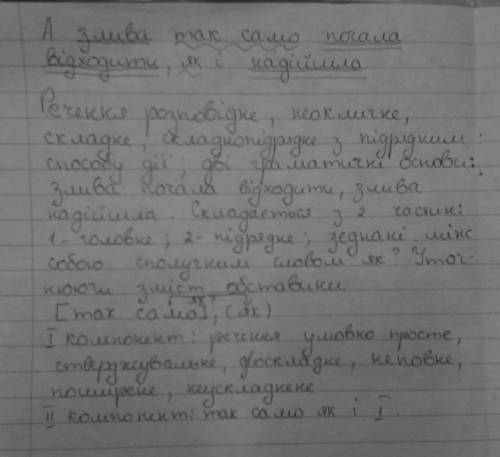 А злива так само почала
відходити, як і надійшла
Речення розповідне, неокличне,
складне, складнопідрядне з підрядним
способу дії; дві граматичні основи:
злива почала відходити, злива
надійшла. Складається з 2 частин:
1 - головне; 2 - підрядне; зєднані між
собою сполучним словом як? Уточ-
нююча зміст обставини
як?
[так само], (як)
I компонент: речення умовно просте,
стверджувальне, двоскладне, неповне,
поширене, неускладнене
II компонент: так само як і I.